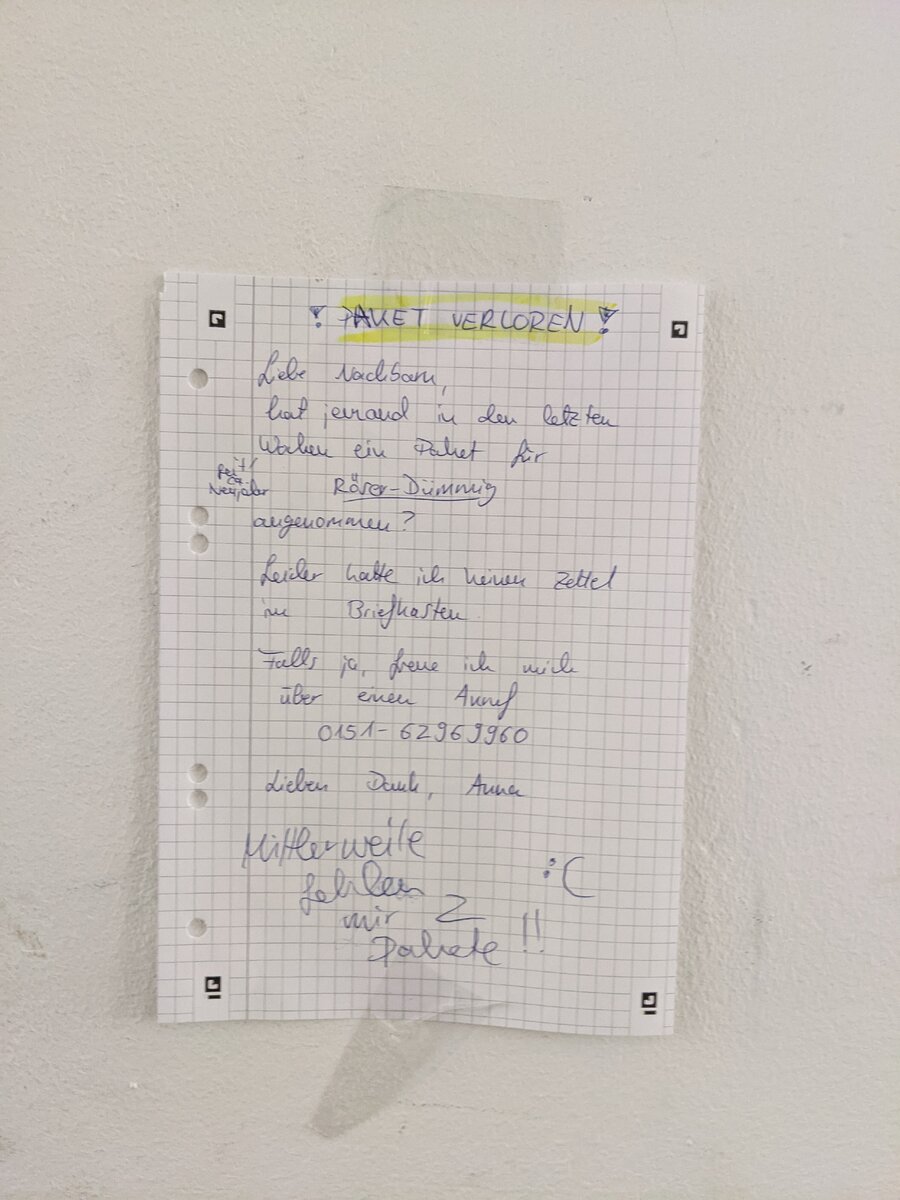 ! PAKET VERLOREN !
Liebe Nachbarn,
hat jemand in den letzten
Wochen ein Paket für
seit
ca.
Neujahr
Röser-Dümmig
angenommen?
Leider hatte ich keinen Zettel
im Briefkasten.
Falls ja, freue ich mich
über einen Anruf
0151-62969960
Lieben Dank, Anna
Mittlerweile
fehlen
mir 2
Pakete !!
:(